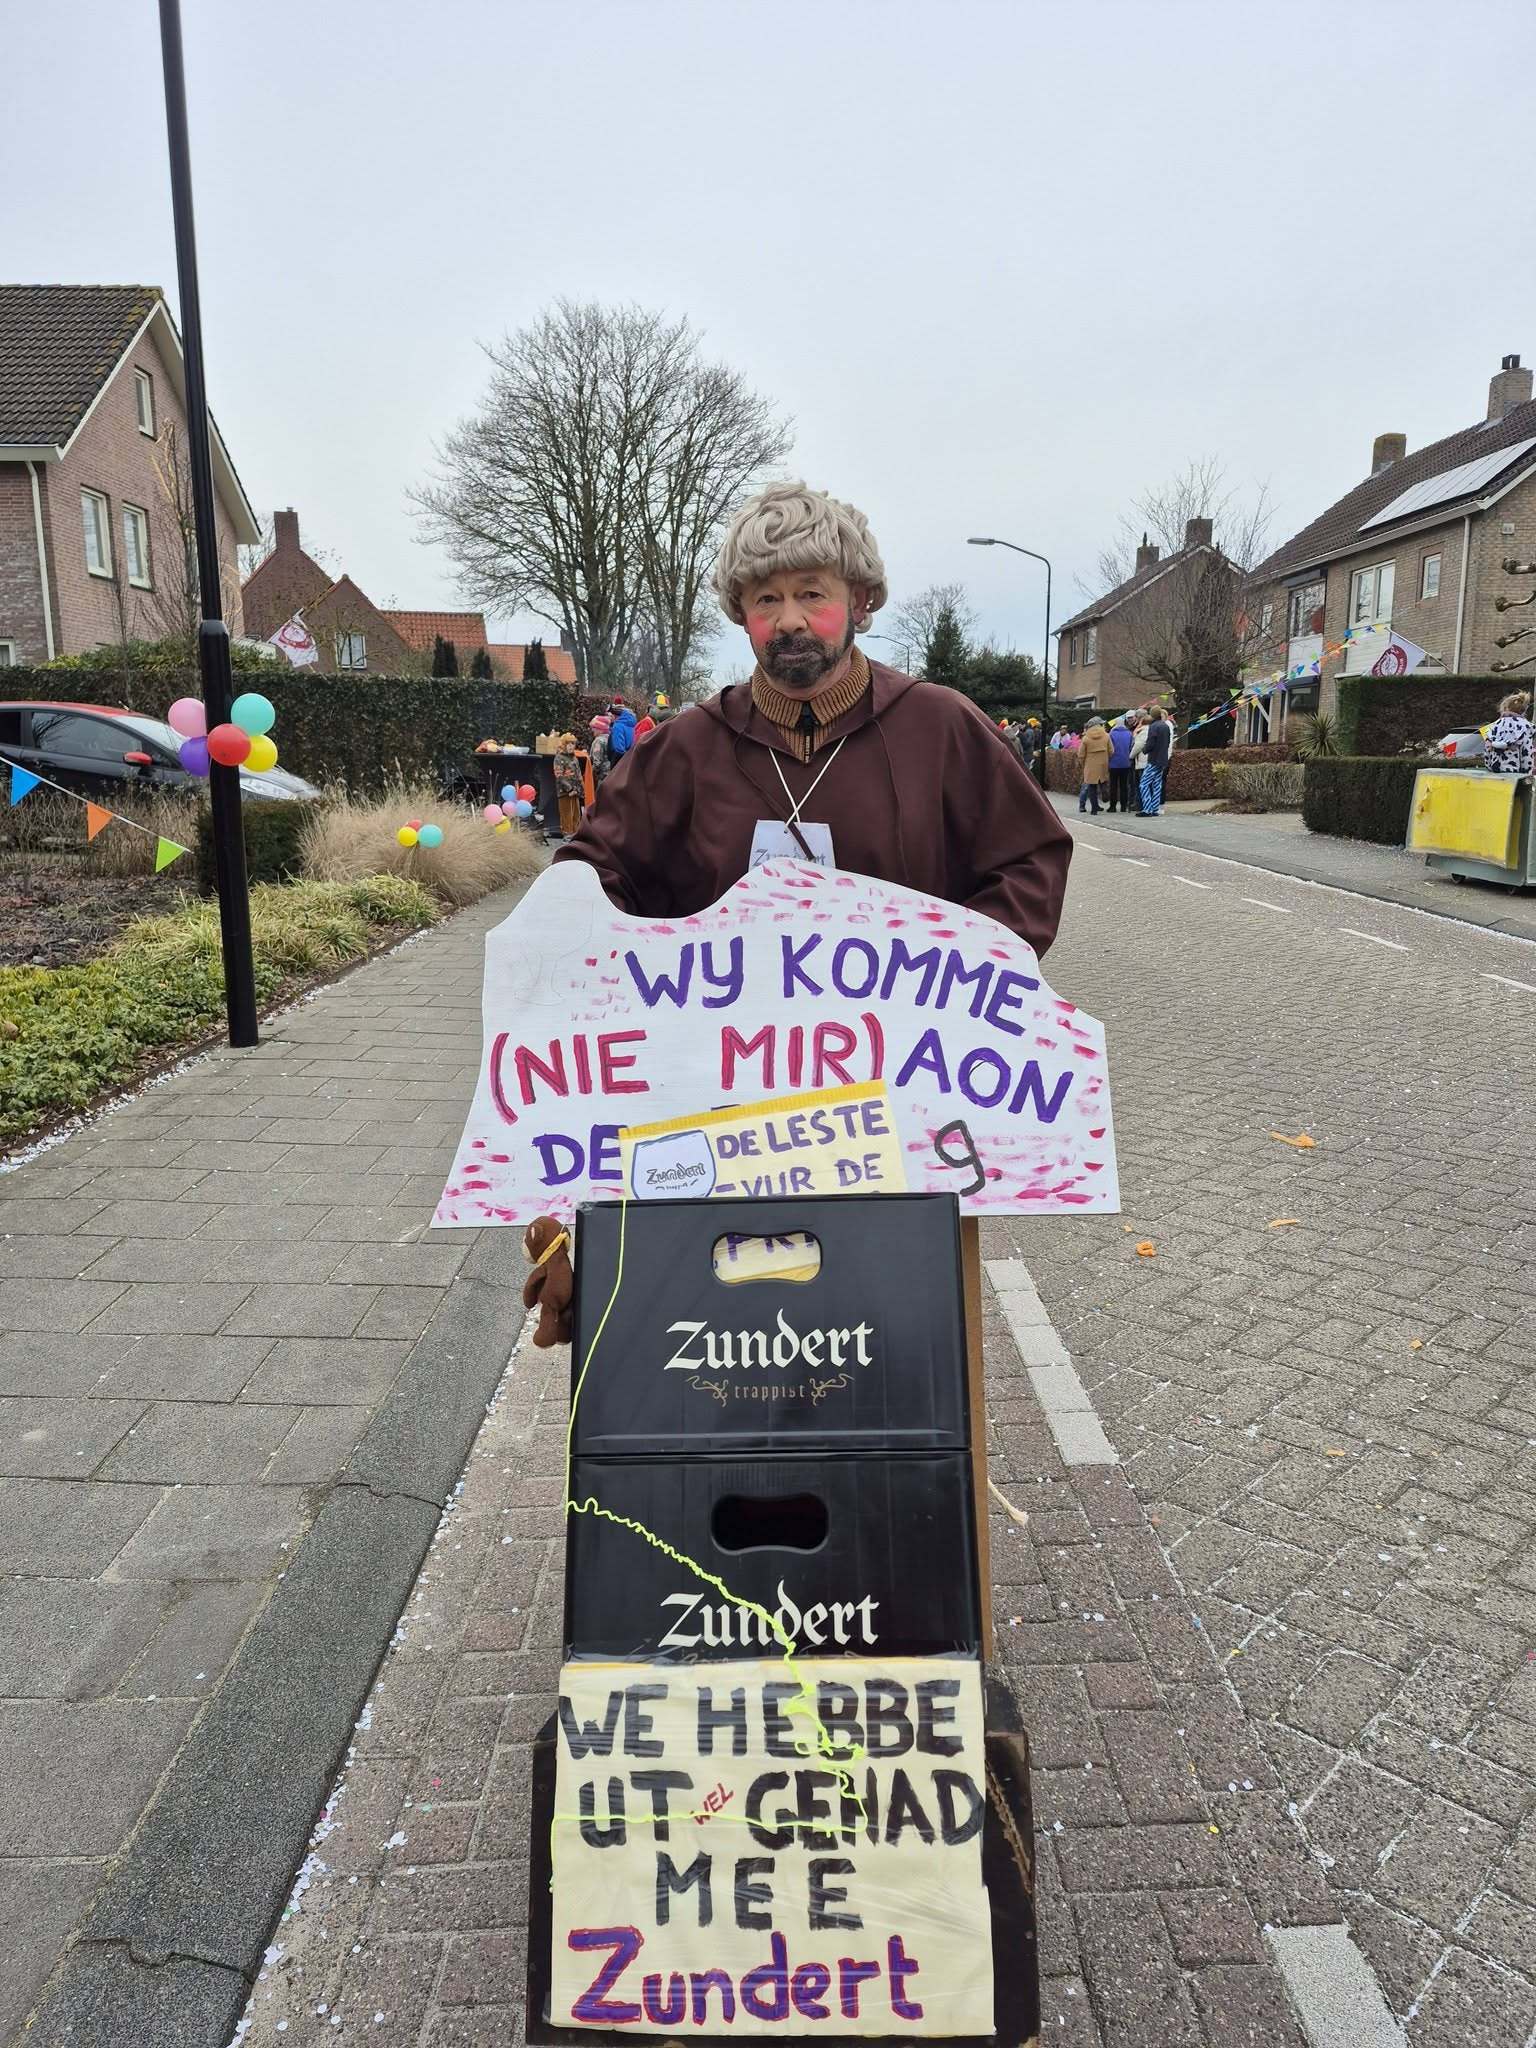 Zundert
WY KOMME
(NIE MIR) AON
DE
g
Zundert
DE LESTE
-VUR DE
PRY
Zundert
trappist
Zundert
WE HEBBE
UT WEL GEHAD
MEE
Zundert